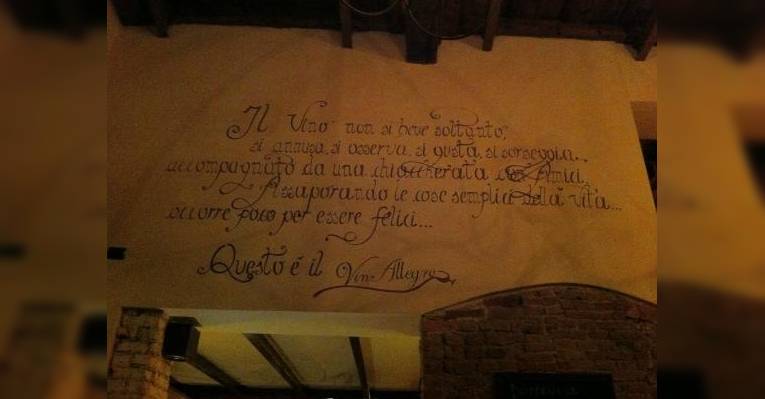 Il Vino non si beve soltanto,
si annusa, si osserva, si gusta, si sorseggia...
accompagnato da una chiaccherata con Amici,
Assaporando le cose semplici della vita...
occorre poco per essere felici...
Questo é il Vino Allegro